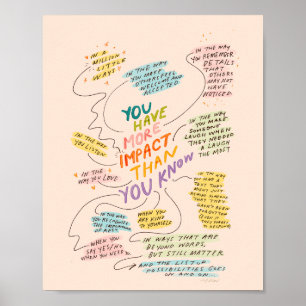 IN A
MILLION
LITTLE
WAYS
IN THE WAY
YOU MAKE
OTHERS FEEL
WELCOME AND
ACCEPTED
IN THE WAY
YOU REMEMBER
DETAILS
THAT
OTHERS
MAY NOT
HAVE
NOTICED
YOU
HAVE
MORE
IMPACT
THAN
YOU KNOW
IN THE WAY
YOU LISTEN
IN THE WAY
YOU MAKE
SOMEONE
LAUGH WHEN
THEY NEEDED
A LAUGH
THE MOST
IN THE
WAY YOU LOVE
IN THE WAY
YOU SENT
A TEXT
THEY
IN THE WAY
YOU RECOGNIZE
THE IMPORTANCE
OF REST
WHEN YOU
ARE KIND
TO YOURSELF
WHEN YOU
SAY YES/NO
WHEN YOU NEED TO
IN WAYS THAT ARE
BEYOND WORDS,
BUT STILL MATTER
AND THE LIST OF
POSSIBILITIES GOES
ON AND ON...